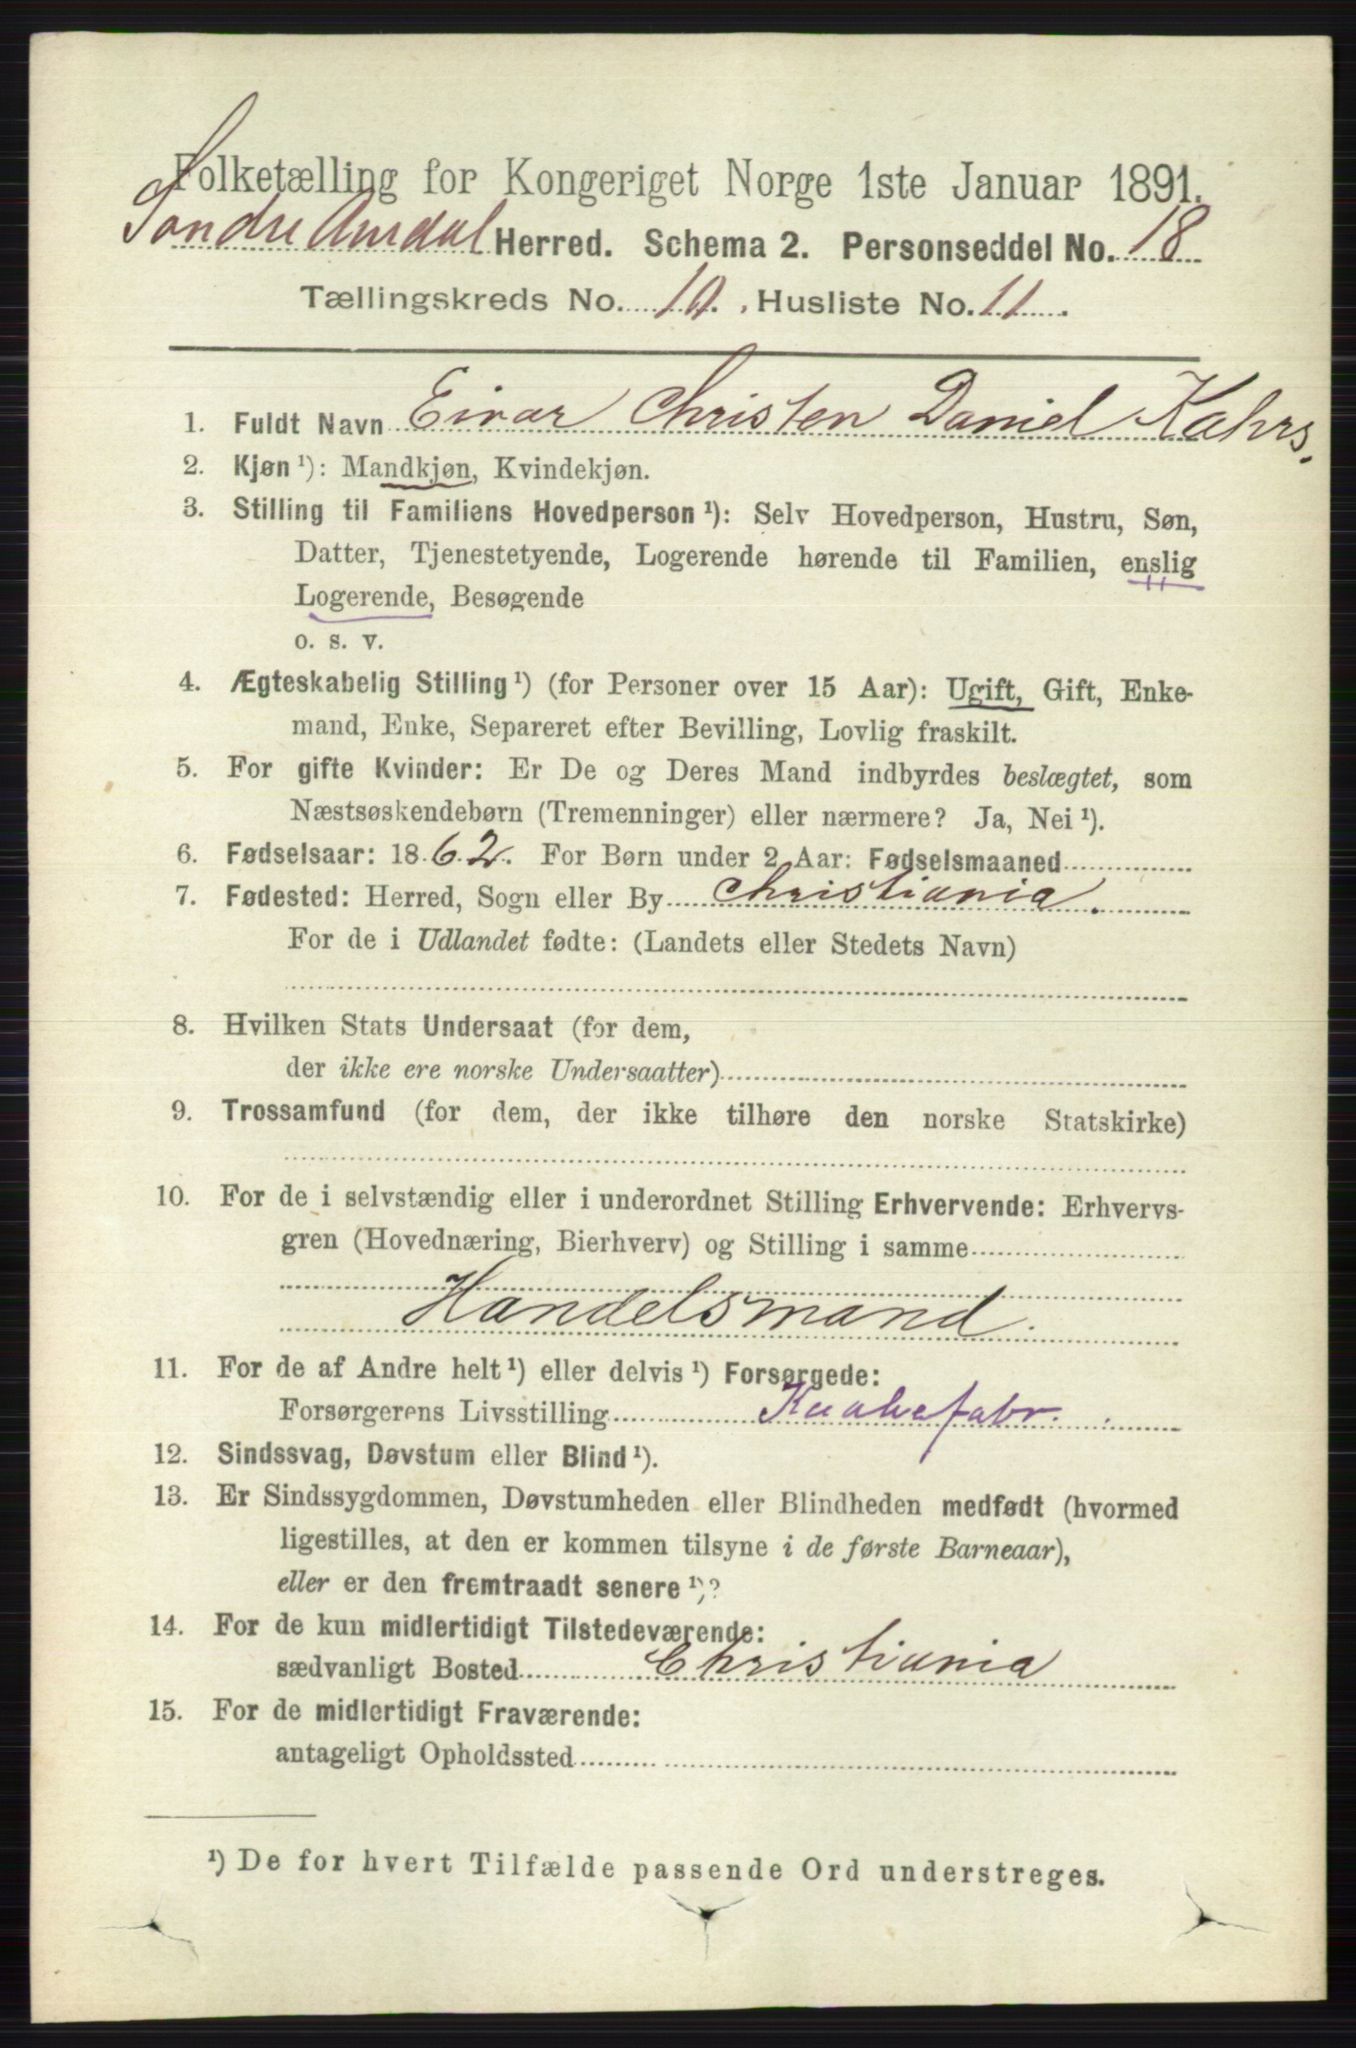 Folketælling for Kongeriget Norge 1ste Januar 1891.
Søndre Aurdal Herred. Schema 2. Personseddel No. 18
Tællingskreds No. 10. Husliste No. 11.
1. Fuldt Navn Einar Christen Daniel Kahrs.
2. Kjøn ¹): Mandkjøn, Kvindekjøn.
3. Stilling til Familiens Hovedperson ¹): Selv Hovedperson, Hustru, Søn,
Datter, Tjenestetyende, Logerende hørende til Familien, enslig
Logerende, Besøgende
o. s. v.
4. Ægteskabelig Stilling ¹) (for Personer over 15 Aar): Ugift, Gift, Enke-
mand, Enke, Separeret efter Bevilling, Lovlig fraskilt.
5. For gifte Kvinder: Er De og Deres Mand indbyrdes beslægtet, som
Næstsøskendebørn (Tremenninger) eller nærmere? Ja, Nei ¹).
6. Fødselsaar: 1862. For Børn under 2 Aar: Fødselsmaaned
7. Fødested: Herred, Sogn eller By Christiania.
For de i Udlandet fødte: (Landets eller Stedets Navn)
8. Hvilken Stats Undersaat (for dem,
der ikke ere norske Undersaatter)
9. Trossamfund (for dem, der ikke tilhøre den norske Statskirke)
10. For de i selvstændig eller i underordnet Stilling Erhvervende: Erhvervs-
gren (Hovednæring, Bierhverv) og Stilling i samme
Handelsmand.
11. For de af Andre helt ¹) eller delvis ¹) Forsørgede:
Forsørgerens Livsstilling
12. Sindssvag, Døvstum eller Blind ¹).
13. Er Sindssygdommen, Døvstumheden eller Blindheden medfødt (hvormed
ligestilles, at den er kommen tilsyne i de første Barneaar),
eller er den fremtraadt senere ¹)?
14. For de kun midlertidigt Tilstedeværende:
sædvanligt Bosted Christiania
15. For de midlertidigt Fraværende:
antageligt Opholdssted
¹) De for hvert Tilfælde passende Ord understreges.